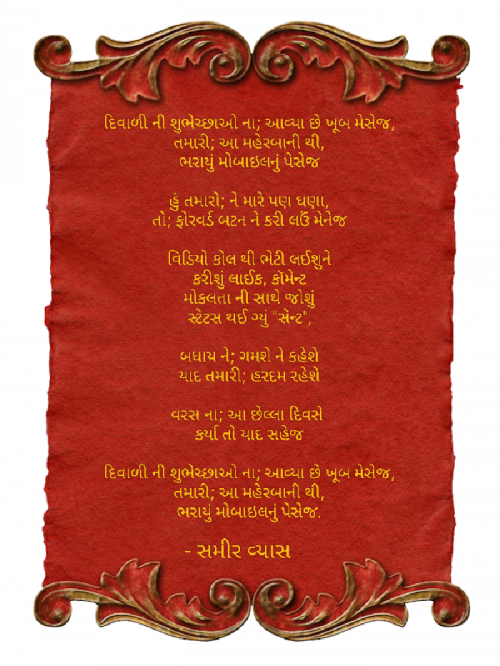 દિવાળી ની શુભેચ્છાઓ ના; આવ્યા છે ખૂબ મેસેજ,
તમારી; આ મહેરબાની થી,
ભરાયું મોબાઇલનું પેસેજ
હું તમારો; ને મારે પણ ઘણા,
તો; ફોરવર્ડ બટન ને કરી લઉં મેનેજ
વિડિયો કોલ થી ભેટી લઈશુને
કરીશું લાઈક, કૉમેન્ટ
મોકલતા ની સાથે જોશું
સ્ટેટસ થઈ ગ્યું "સેન્ટ",
બધાય ને; ગમશે ને કહેશે
યાદ તમારી; હરદમ રહેશે
વરસ ના; આ છેલ્લા દિવસે
કર્યા તો યાદ સહેજ
દિવાળી ની શુભેચ્છાઓ ના; આવ્યા છે ખૂબ મેસેજ,
તમારી; આ મહેરબાની થી,
ભરાયું મોબાઇલનું પેસેજ.
- સમીર વ્યાસ